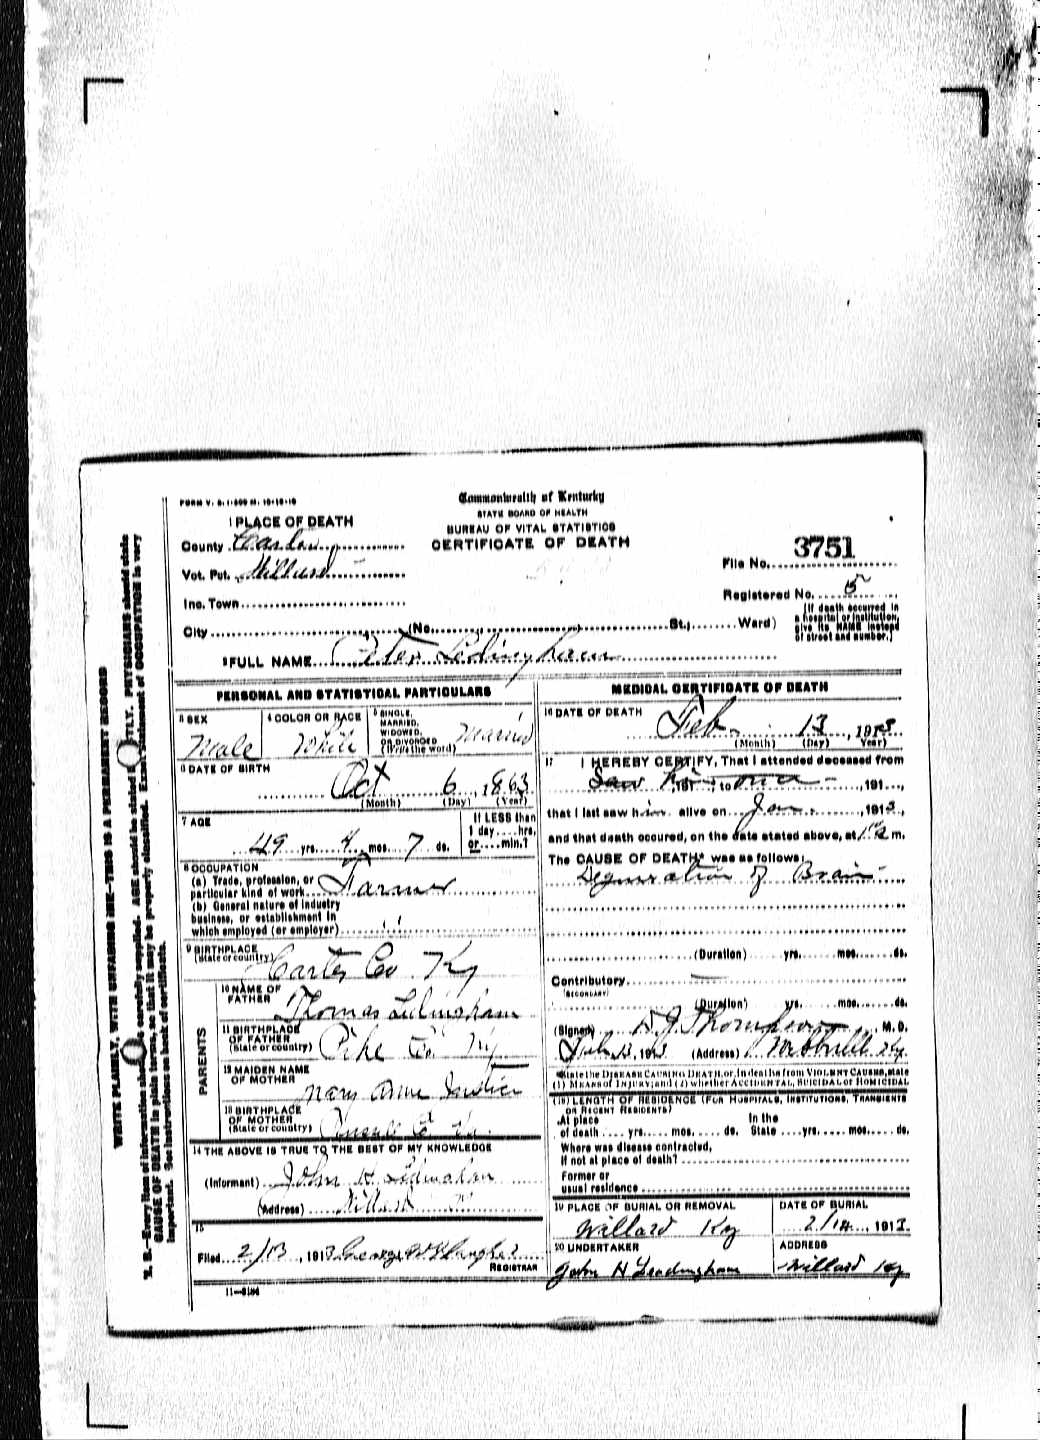 FORM V. S. 1-500 M. 10-18-10
Commonwealth of Kentucky
STATE BOARD OF HEALTH
BUREAU OF VITAL STATISTICS
CERTIFICATE OF DEATH
1 PLACE OF DEATH
County Carter
Vot. Pct. Willard
Inc. Town
City (No. St.; Ward)
File No. 3751
Registered No. 5
(If death occurred in a hospital or institution, give its NAME instead of street and number.)
2 FULL NAME Peter Ledingham
PERSONAL AND STATISTICAL PARTICULARS
3 SEX Male
4 COLOR OR RACE White
5 SINGLE, MARRIED, WIDOWED, OR DIVORCED (Write the word) Married
6 DATE OF BIRTH
Oct 6, 1863
(Month) (Day) (Year)
7 AGE
49 yrs. 4 mos. 7 ds.
If LESS than 1 day hrs. or min.?
8 OCCUPATION
(a) Trade, profession, or particular kind of work Farmer
(b) General nature of industry business, or establishment in which employed (or employer)
9 BIRTHPLACE (State or country) Carter Co Ky
PARENTS
10 NAME OF FATHER Thomas Ledingham
11 BIRTHPLACE OF FATHER (State or country) Pike Co Ky
12 MAIDEN NAME OF MOTHER Mary Anne Justice
13 BIRTHPLACE OF MOTHER (State or country) Co Ky
14 THE ABOVE IS TRUE TO THE BEST OF MY KNOWLEDGE
(Informant) John H
(Address) Willard
15
Filed 2/13, 1913 George W REGISTRAR
11-3184
MEDICAL CERTIFICATE OF DEATH
16 DATE OF DEATH
Feb 13, 1913
(Month) (Day) (Year)
17 I HEREBY CERTIFY, That I attended deceased from
Saw him, 191, to once, 191,
that I last saw him alive on Jan, 1913,
and that death occured, on the date stated above, at m.
The CAUSE OF DEATH* was as follows:
Degeneration of Brain
(Duration) yrs. mos. ds.
Contributory
(SECONDARY)
(Duration) yrs. mos. ds.
(Signed) Thompson, M. D.
Feb 13, 1913 (Address) Webbville Ky.
*State the DISEASE CAUSING DEATH, or, in deaths from VIOLENT CAUSES, state
(1) MEANS OF INJURY; and (2) whether ACCIDENTAL, SUICIDAL or HOMICIDAL
(18) LENGTH OF RESIDENCE (FOR HOSPITALS, INSTITUTIONS, TRANSIENTS OR RECENT RESIDENTS)
At place of death yrs. mos. ds. In the State yrs. mos. ds.
Where was disease contracted,
if not at place of death?
Former or
usual residence
19 PLACE OF BURIAL OR REMOVAL
Willard Ky
DATE OF BURIAL
2/14, 1913
20 UNDERTAKER
John H Leadingham
ADDRESS
Willard Ky
WRITE PLAINLY, WITH UNFADING INK—THIS IS A PERMANENT RECORD
N. B.—Every item of information should be carefully supplied. AGE should be stated EXACTLY. PHYSICIANS should state
CAUSE OF DEATH in plain terms, so that it may be properly classified. Exact statement of OCCUPATION is very
important. See instructions on back of certificate.